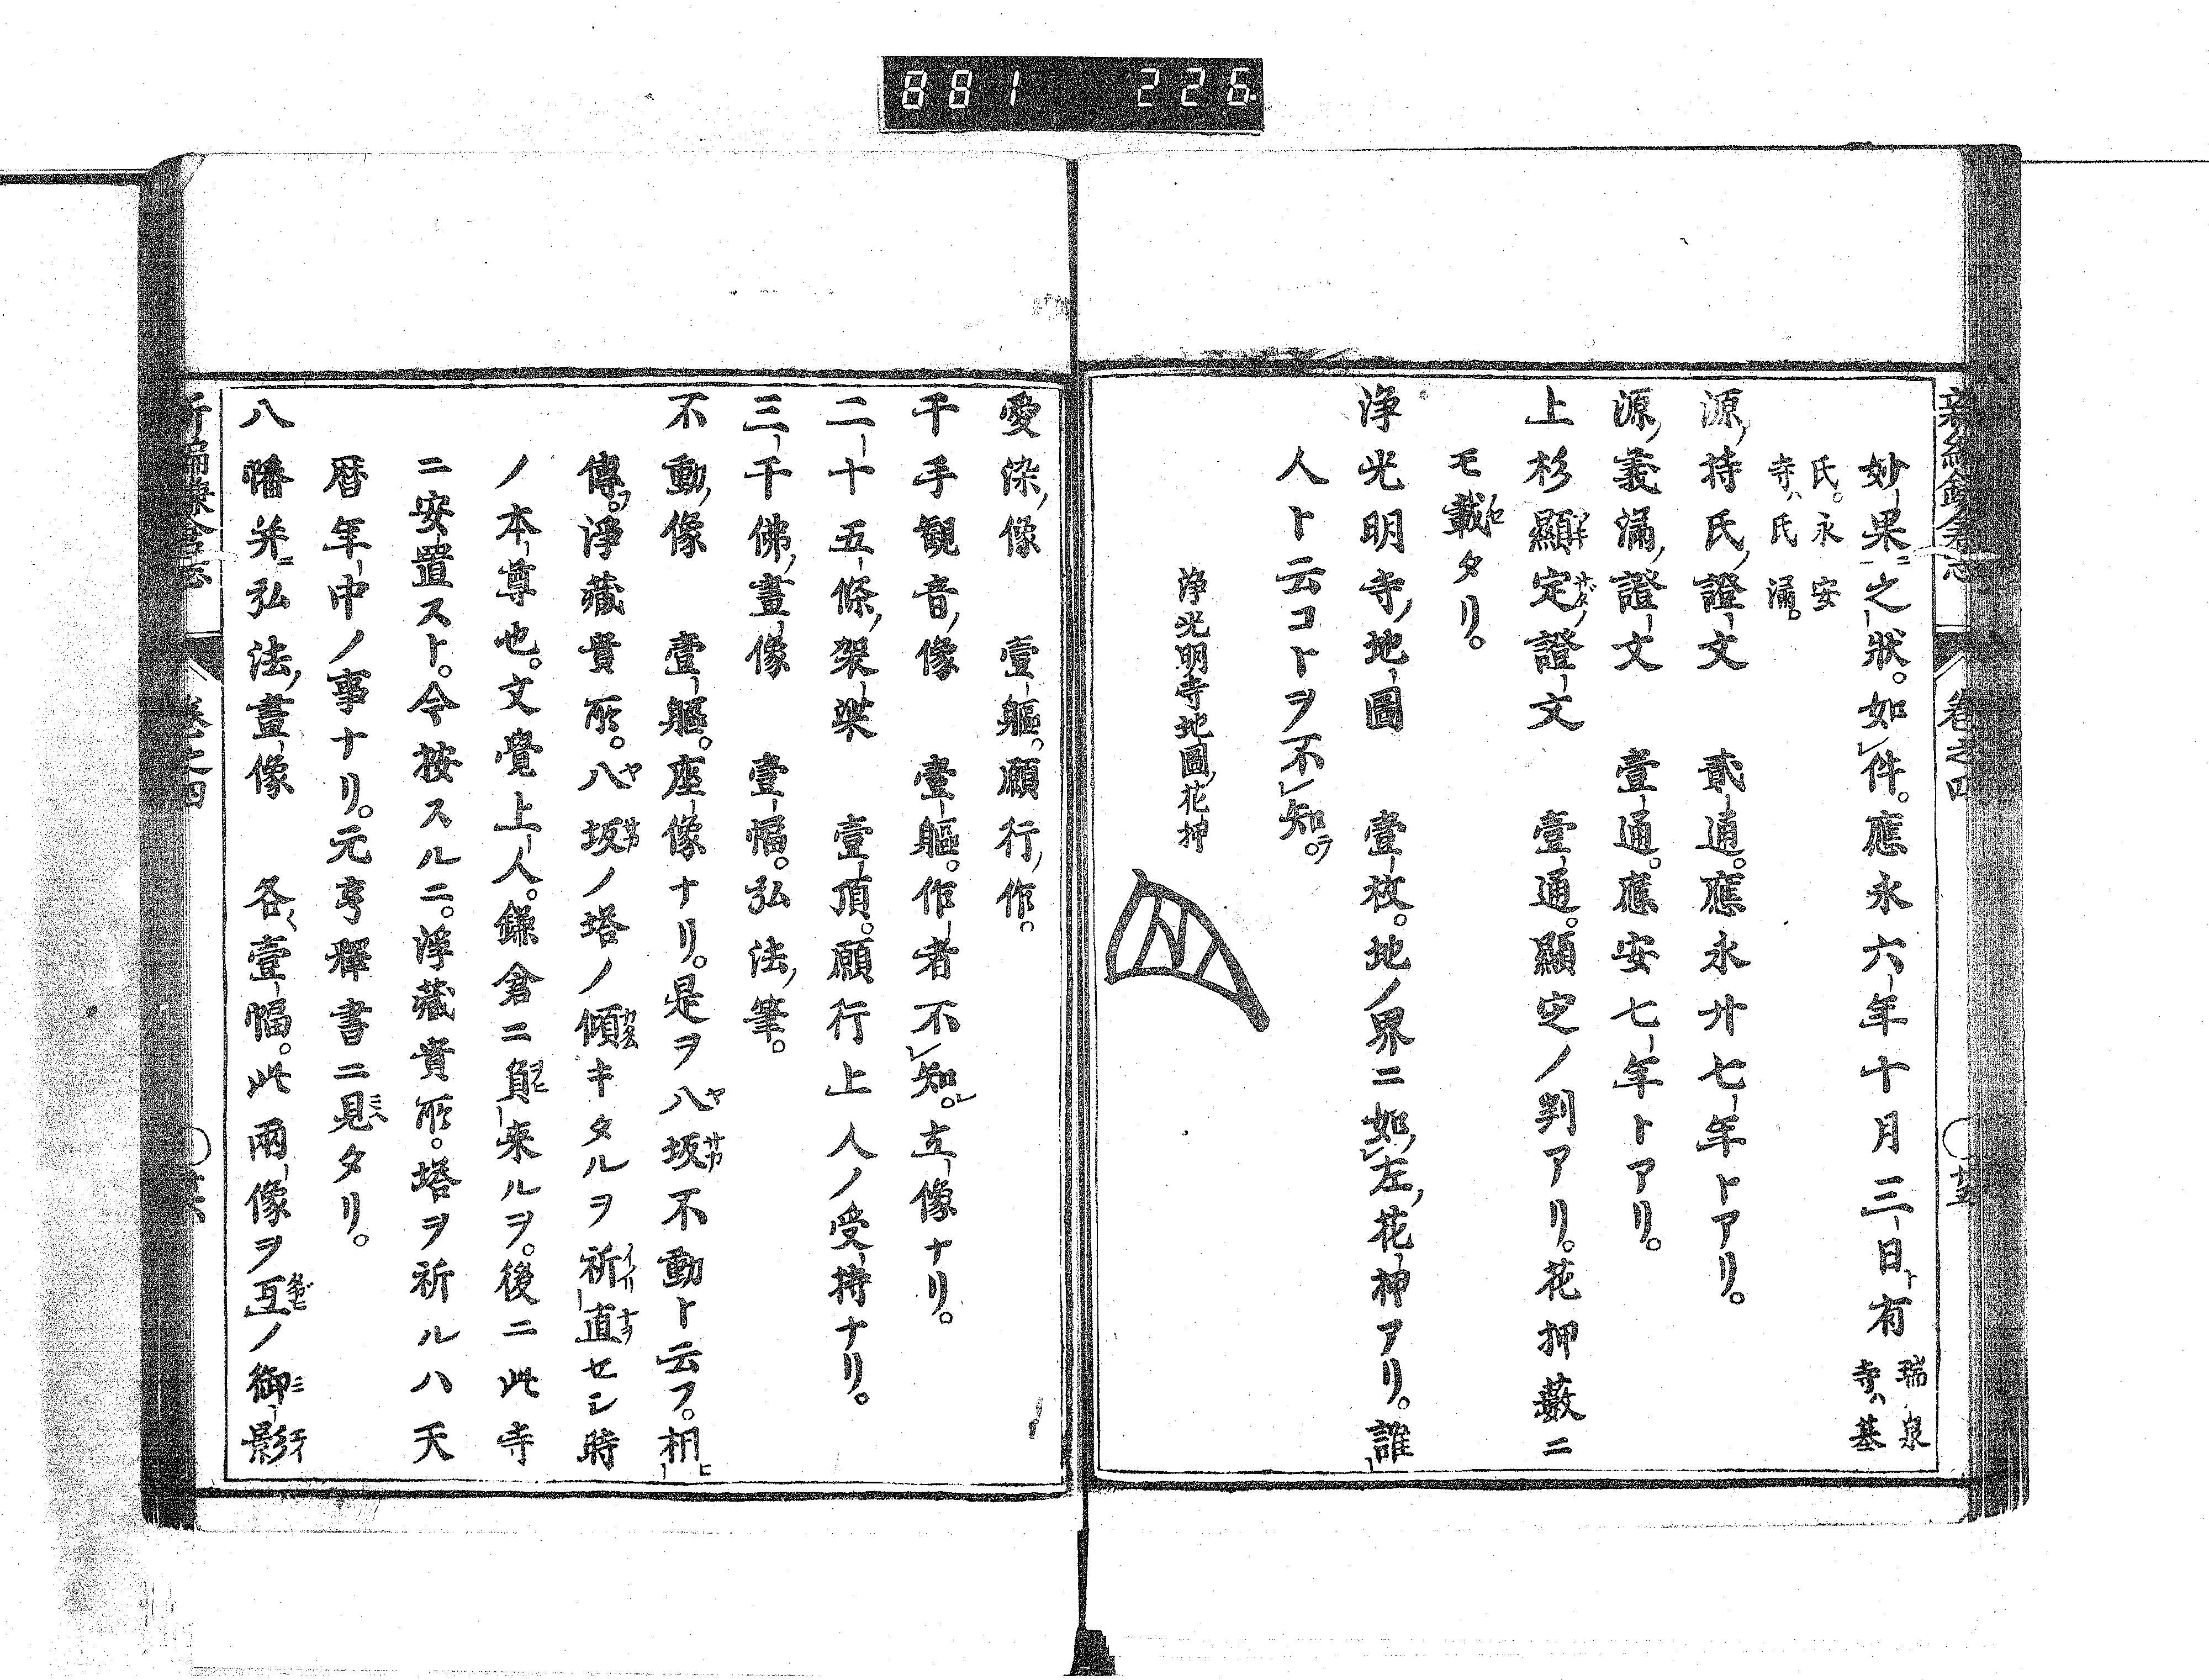 881 226
新編鎌倉志 卷之四 〇廿五
妙果之狀。如件。應永六年十月三日ト有瑞泉
寺ハ基
氏。永安
寺ハ氏滿。
源ノ持氏ノ證文 貳通。應永廿七年トアリ。
源ノ義滿ノ證文 壹通。應安七年トアリ。
上杉顯定ノ證文 壹通。顯定ノ判アリ。花押藪ニ
モ載タリ。
浄光明寺ノ地圖 壹枚。地ノ界ニ如左ノ花押アリ。誰
人ト云コトヲ不知。
浄光明寺地圖ノ花押
愛染ノ像 壹軀。願行ノ作。
千手観音ノ像 壹軀。作者不知。立像ナリ。
二十五條ノ袈裟 壹頂。願行上人ノ受持ナリ。
三千佛ノ畫像 壹幅。弘法ノ筆。
不動ノ像 壹軀。座像ナリ。是ヲ八坂不動ト云フ。相
傳フ。淨藏貴所。八坂ノ塔ノ傾キタルヲ祈直セシ時
ノ本尊也。文覺上人。鎌倉ニ負来ルヲ。後ニ此寺
ニ安置スト。今按スルニ。淨藏貴所。塔ヲ祈ルハ天
暦年中ノ事ナリ。元亨釋書ニ見タリ。
八幡并ニ弘法ノ畫像 各壹幅。此兩像ヲ互ノ御影
新編鎌倉志 卷之四